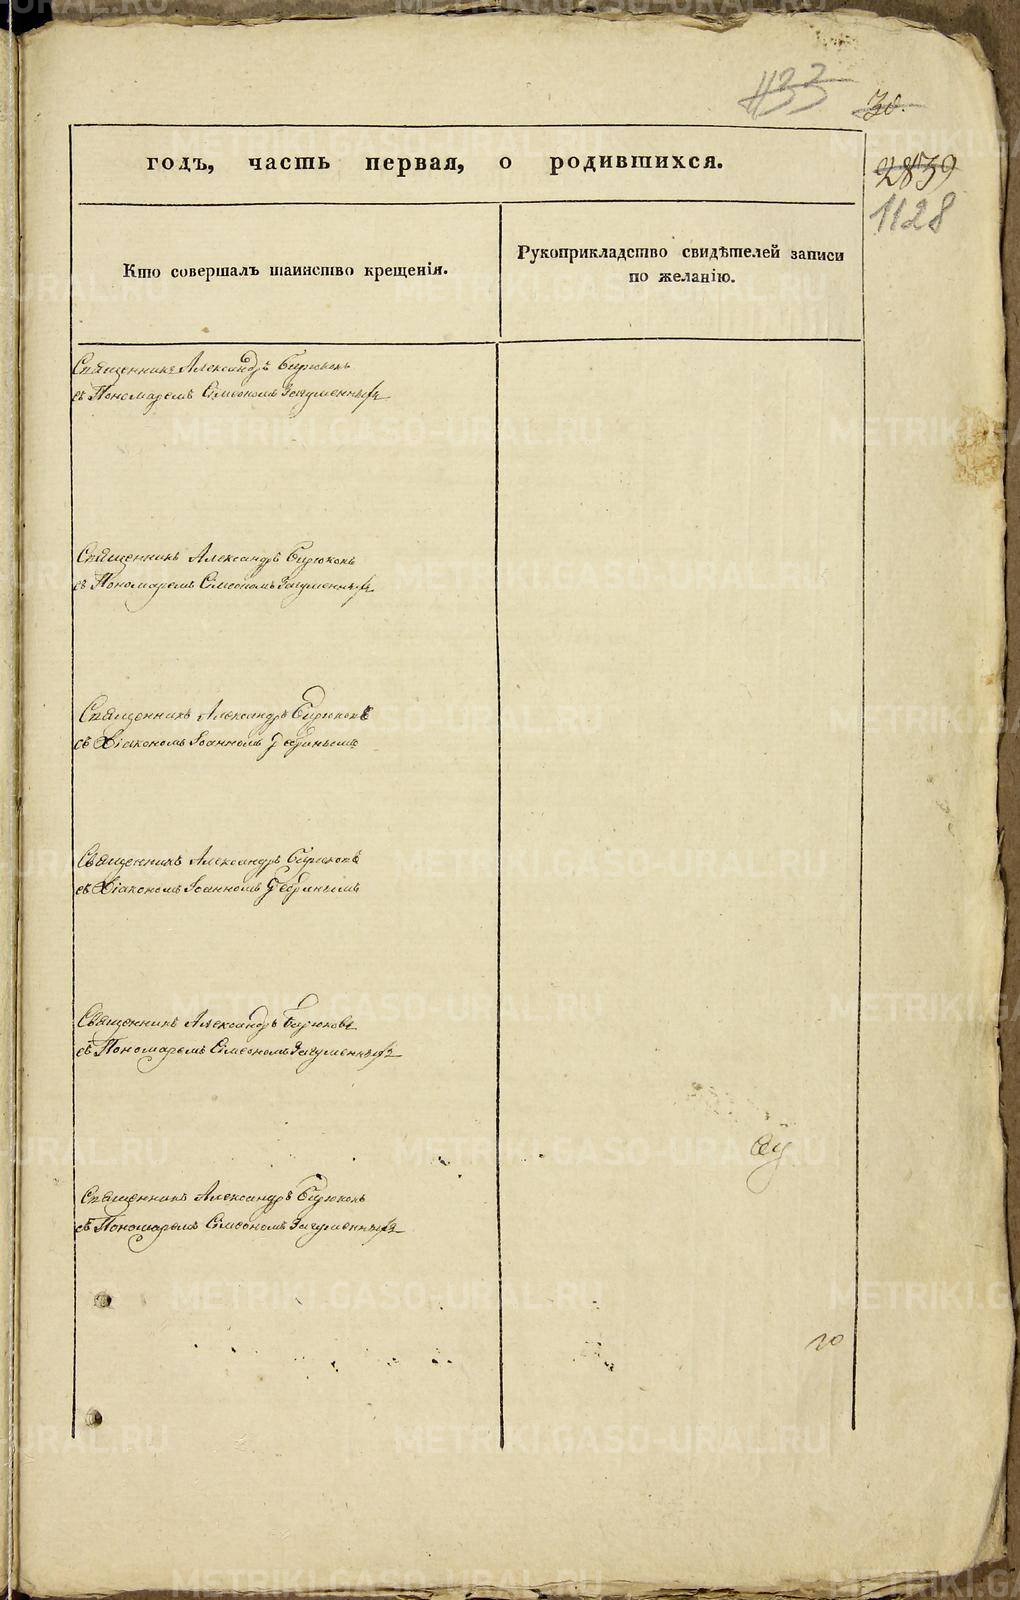 1133
30.
годъ, часть первая, о родившихся.
2839
1128
Кто совершалъ таинство крещенія.
Рукоприкладство свидѣтелей записи
по желанію.
Священникъ Александръ Бирюковъ
съ Пономаремъ Сімеономъ Загуменныхъ
Священникъ Александръ Бирюковъ
съ Пономаремъ Сімеономъ Загуменныхъ
Священникъ Александръ Бирюковъ
съ Діакономъ Іоанномъ
Священникъ Александръ Бирюковъ
съ Діакономъ Іоанномъ
Священникъ Александръ Бирюковъ
съ Пономаремъ Сімеономъ Загуменныхъ
Священникъ Александръ Бирюковъ
съ Пономаремъ Сімеономъ Загуменныхъ
METRIKI.GASO-URAL.RU